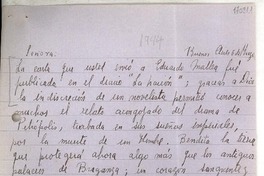 1944
Señora: Buenos Aires 6 de Mayo
La carta que usted envió a Eduardo Mallea fué
publicada en el diario "La Nación"; gracias a Dios
la indiscreción de un novelista permitió conocer a
muchos el relato acongojado del drama de
Petrópolis, turbada en sus sueños imperiales,
por la muerte de un Hombre. Bendita la tierra
que protegerá ahora algo más que los antiguos
palacios de Braganza; un corazón sangrante y